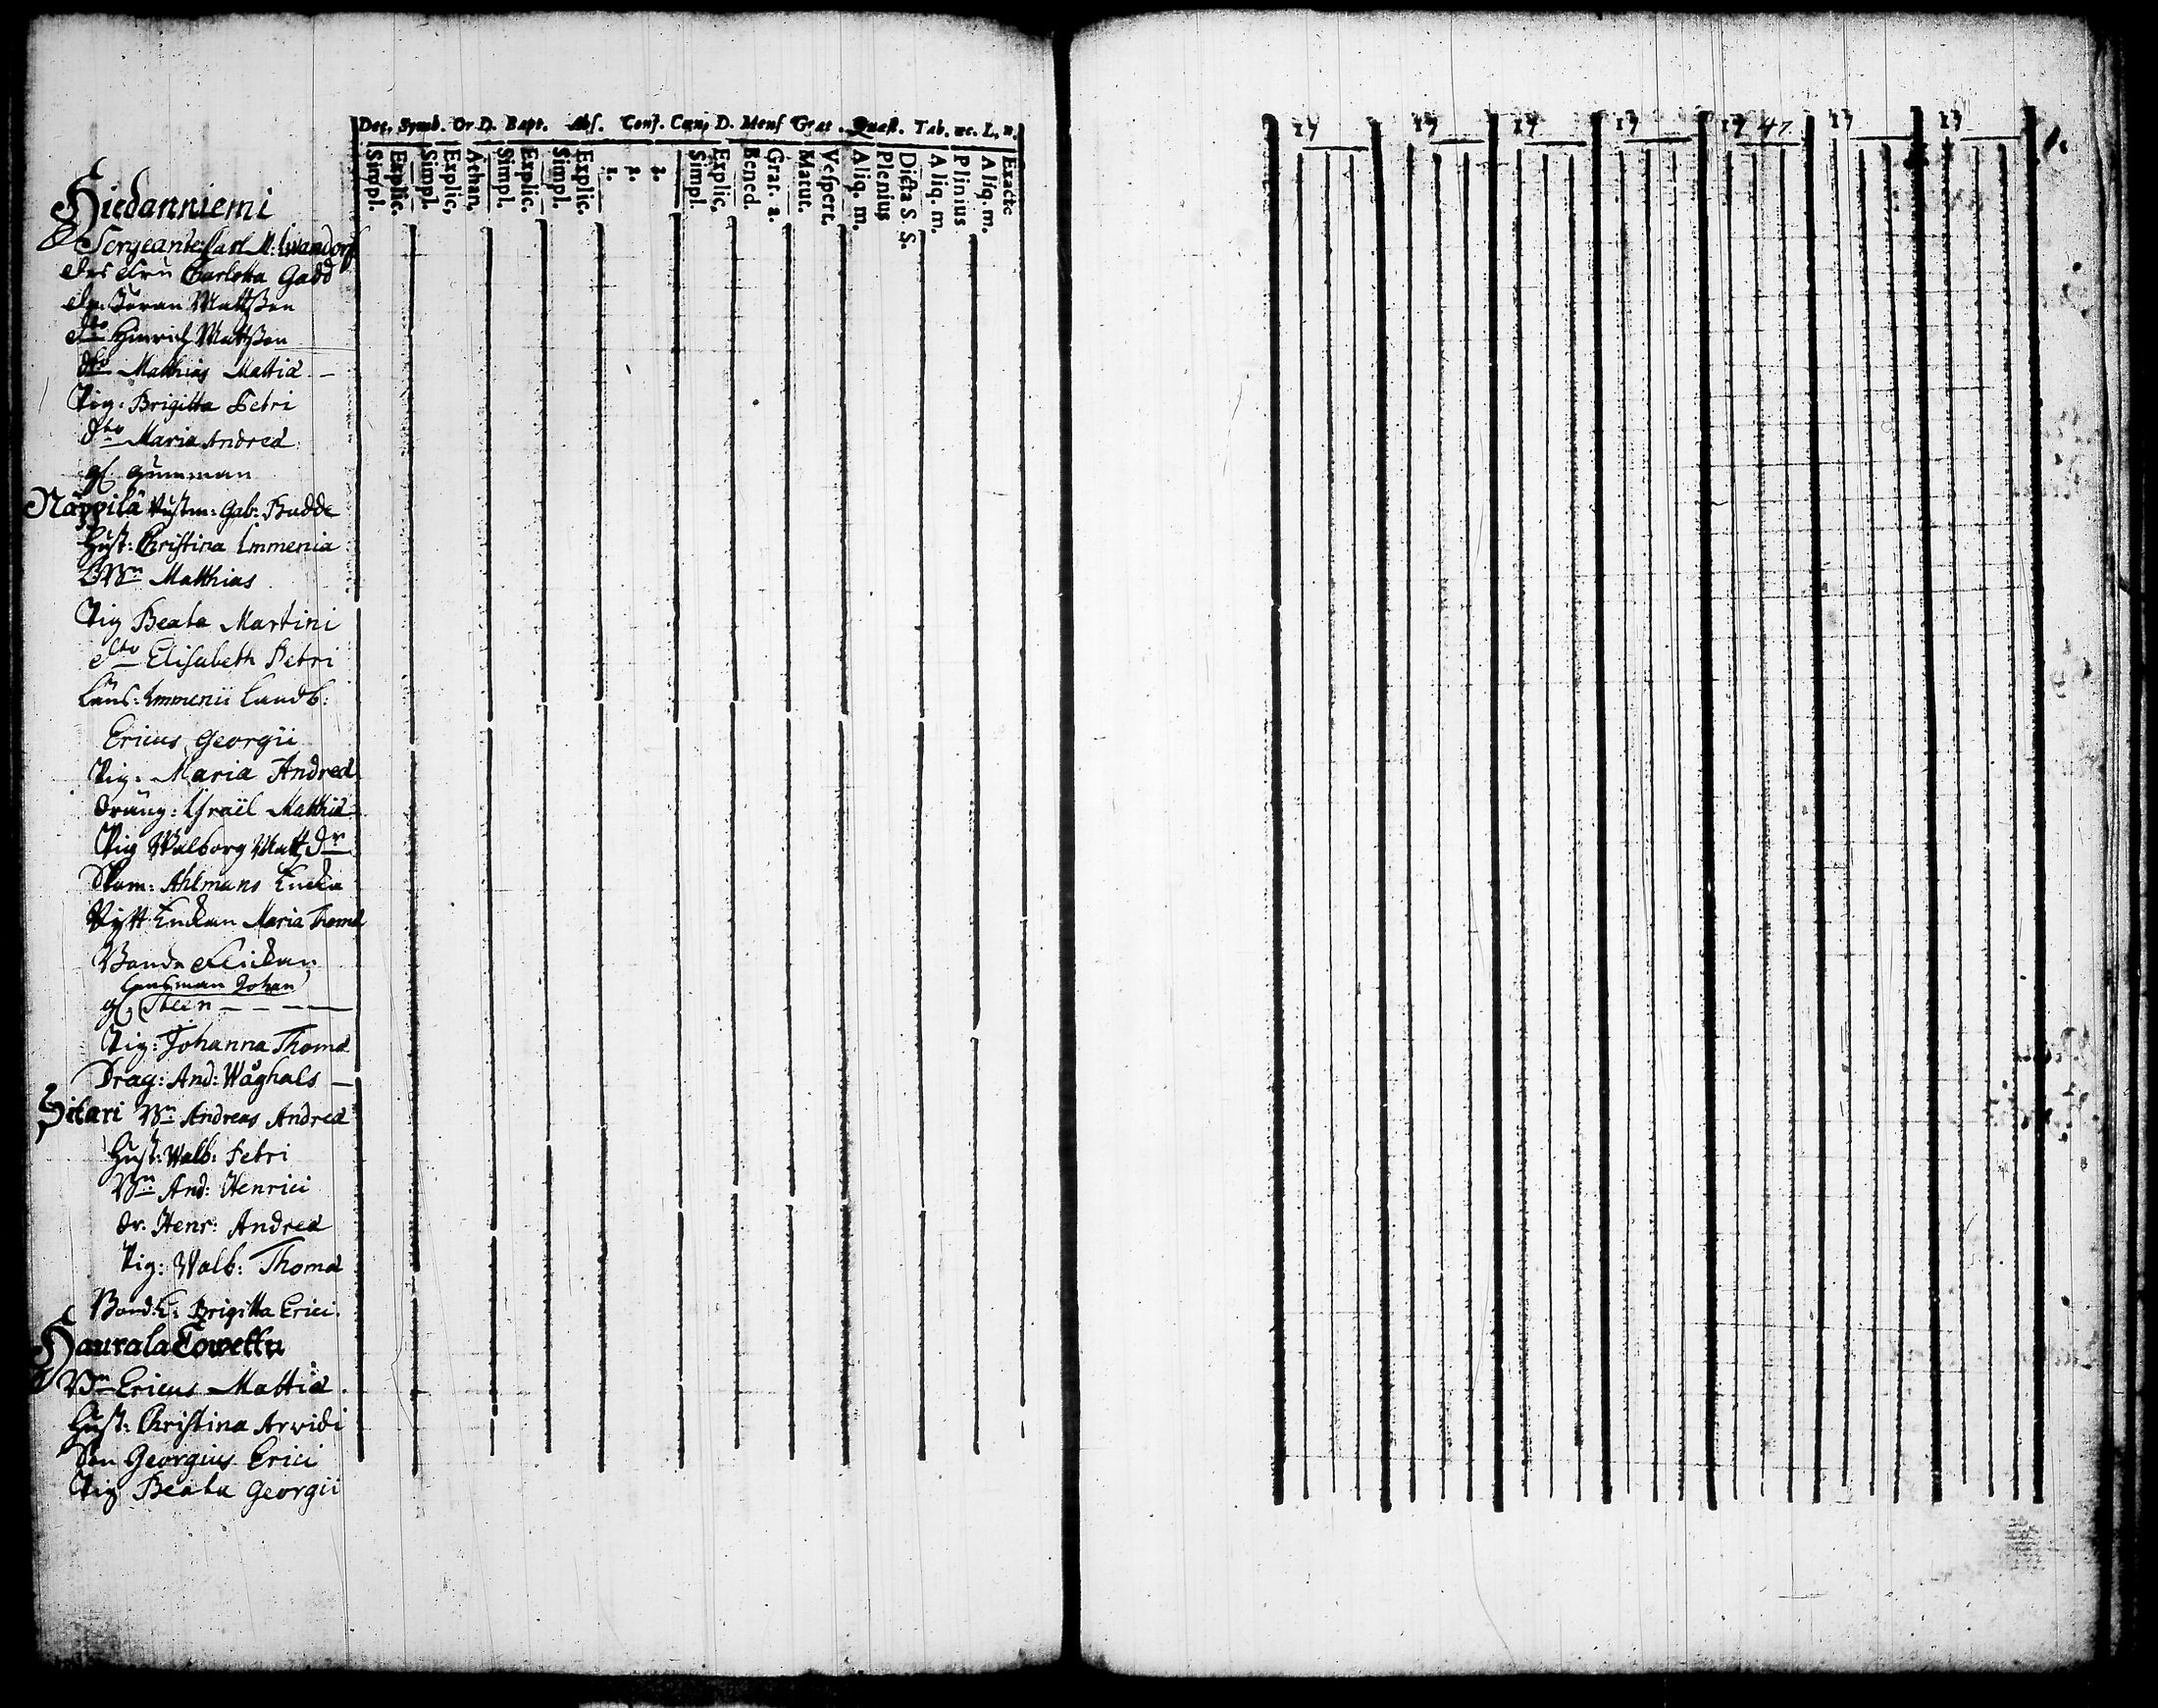 Dec. Symb. Or D. Bapt. Abs. Conf. Cœn, D. Mens Grat. Quæst. Tab. œc. L. n.
Simpl. Explic. Simpl. Explic, Athan. Simpl. Explic. Simpl. Explic. 1. 2. 3. Simpl. Explic, Bened. Grat. a. Matut. Vespert. Aliq. m. Plenius Dicta S. S. Aliq. m. Plinius Aliq. m. Exacte
17 17 17 17 17 47 17 17 1.
Hiedanniemi
Sergeante: Carl M:
Fru Charlotta Gadd
Jöran Mattßon
dto Hinrich Mattßon
dto Mathias Mattiæ
Pig: Brigitta Petri
dto Maria Andreæ
gl. gumman
Näppilä Rustm: Gab: Budde
Hust: Christina Immenia
Matthias
Pig Beata Martini
dto Elisabeth Petri
Läns: Immenii Landb:
Ericus Georgii
Pig: Maria Andreæ
Dräng: Israël Matthiæ
Pig Walborg Matt dr
Ahlmans Encka
Rytt Enckan Maria Thomæ
Bonde Enckan
Länsman Johan
gl. Steen
Pig: Johanna Thomæ
Drag: And: Wåghals
Hilari Bn Andreas Andreæ
Hust: Walb: Petri
Bn And: Henrici
Dr. Henr: Andreæ
Pig: Walb: Thomæ
Bond.E: Brigitta Erici.
Haurala
Bn Ericus Mattiæ
Hust: Christina Arvidi
Son Georgius Erici
Pig Beata Georgii